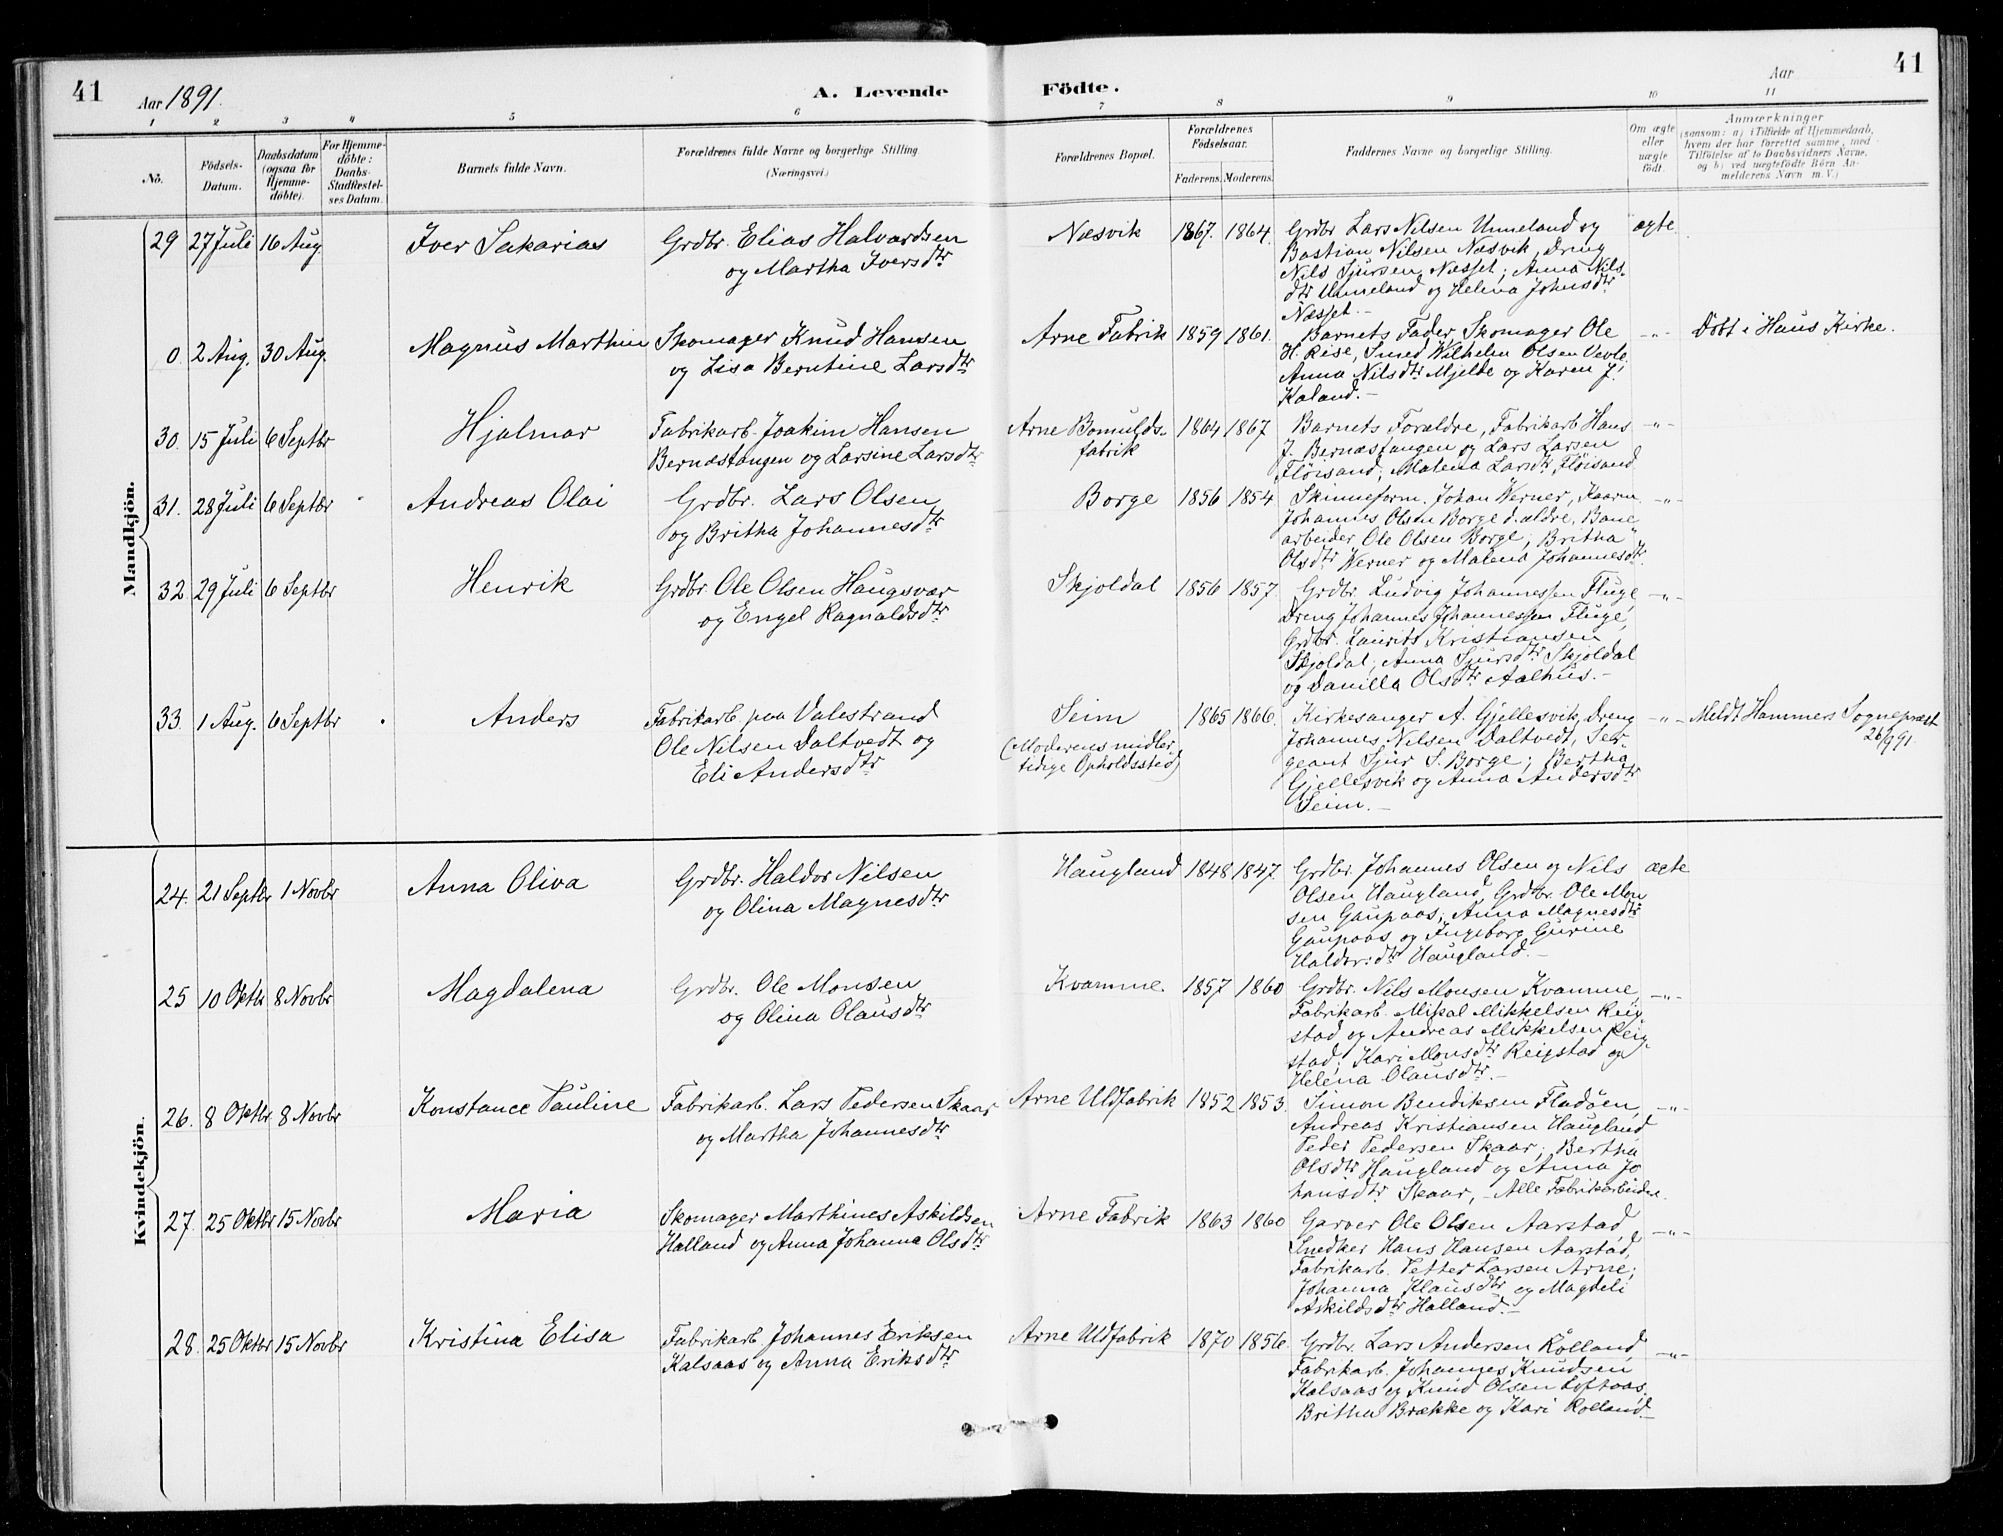 41
Aar 1891.
A. Levende
Födte.
Aar
41
1 2 3 4 5 6 7 8 9 10 11
No.
Födsels-Datum.
Daabsdatum (ogsaa for Hjemmedöbte).
For Hjemmedöbte: Daabs-Stadfæstelses Datum.
Barnets fulde Navn.
Forældrenes fulde Navne og borgerlige Stilling. (Næringsvei.)
Forældrenes Bopæl.
Forældrenes Födselsaar.
Faderens. Moderens.
Faddernes Navne og borgerlige Stilling.
Om ægte eller uægte födt.
Anmærkninger
(saasom: a) i Tilfælde af Hjemmedaab, hvem der har forrettet samme, med Tilföielse af to Daabsvidners Navne, og b) ved uægtefödte Börn Anmelderens Navn m. V.)
Mandkjön.
29 27 Juli 16 Aug. Iver Sakarias
Grdbr. Elias Halvardsen
og Martha Iversdtr
Næsvik 1867. 1864.
Grdbr Lars Nilsen Unneland og
Bastian Nilsen Næsvik, Dreng
Nils Sjursen Næsset; Anna Nils
dtr Unneland og Helena Johnsdtr
Næsset.-
ægte
0. 2 Aug. 30 Aug. Magnus Marthin
Skomager Knud Hansen
og Lisa Berntine Larsdtr
Arne Fabrik 1859 1861.
Barnets Fader, Skomager Ole
H. Rise, Smed Wilhelm Olsen
Anna Nilsdtr Mjelde og Karen J.
Kaland.-
-"- Döbt i Haus Kirke.
30. 15 Juli 6 Septbr Hjalmar
Fabrikarb. Joakim Hansen
Bernæstangen og Larsine Larsdtr
Arne Bomulds-
fabrik
1864 1867
Barnets Forældre, Fabrikarb Hans
J. Bernæstangen og Lars Larsen
Flöisand; Malena Larsdtr Flöisand
-"-
31. 28 Juli 6 Septbr Andreas Olai
Grdbr. Lars Olsen
og Britha Johannesdtr
Borge 1856 1854
Skinneform. Johan Werner, Kaarm.
Johannes Olsen Borge d. ældre, Bane
arbeider Ole Olsen Borge; Britha
Olsdtr Werner og Malena Johannesdtr.
-"-
32 29 Juli 6 Septbr Henrik
Grdbr. Ole Olsen Haugsvær
og Engel Ragnaldsdtr
Skjoldal 1856 1857.
Grdbr. Ludvig Johannessen Fluge
Dreng Johannes Johannessen Fluge,
Grdbr. Laurits Kristiansen
Skjoldal; Anna Sjursdtr Skjoldal
og Danilla Olsdtr Aalhus.-
-"-
33. 1 Aug. 6 Septbr Anders
Fabrikarb. paa Valestrand
Ole Nilsen Daltvedt og
Eli Andersdtr
Seim
(Moderens midler
tidige Opholdssted)
1865 1866.
Kirkesanger A. Gjellesvik, Dreng
Johannes Nilsen Daltvedt, Ser-
geant Sjur S. Borge; Bertha
Gjellesvik og Anna Andersdtr
Seim.-
-"- Meldt Hammers Sognepræst
26/9 91.
Kvindekjön.
24. 21 Septbr 1 Novbr Anna Oliva
Grdbr. Haldor Nilsen
og Olina Magnesdtr
Haugland 1848 1847.
Grdbr. Johannes Olsen og Nils
Olsen Haugland, Grdbr. Ole Mon
sen Gaupaas; Anna Magnesdtr
Gaupaas og Ingeborg Gurine
Haldorsdtr Haugland.-
ægte
25 10 Oktbr 8 Novbr Magdalena
Grdbr. Ole Monsen
og Olina Olausdtr
Kvamme. 1857 1860
Grdbr. Nils Monsen Kvamme,
Fabrikarb. Mikal Mikkelsen Reig
stad og Andreas Mikkelsen Reig-
stad; Kari Monsdtr Reigstad og
Helena Olausdtr.-
-"-
26. 8 Oktbr 8 Novbr Konstance Pauline
Fabrikarb. Lars Pedersen Skaar
og Martha Johannesdtr
Arne Uldfabrik 1852 1853.
Simon Bendiksen Fladöen,
Andreas Kristiansen Haugland
Peder Pedersen Skaar; Bertha
Olsdtr Haugland og Anna Jo
hansdtr Skaar, - Alle Fabrikarbeidere.
-"-
27. 25 Oktbr 15 Novbr Maria
Skomager Marthines Askildsen
Halland og Anna Johanna Olsdtr
Arne Fabrik 1863 1860
Garver Ole Olsen Aarstad,
Snedker Hans Hansen Aarstad,
Fabrikarb. Petter Larsen Arne;
Johanna Klausdtr og Magdeli
Askildsdtr Halland.-
-"-
28. 25 Oktbr 15 Novbr Kristina Elisa
Fabrikarb. Johannes Eriksen
Kalsaas og Anna Eriksdtr
Arne Uldfabrik 1870 1856.
Grdbr. Lars Andersen Rolland,
Fabrikarb. Johannes Knudsen
Kalsaas og Knud Olsen Loftaas;
Britha Brække og Kari Rolland
-"-